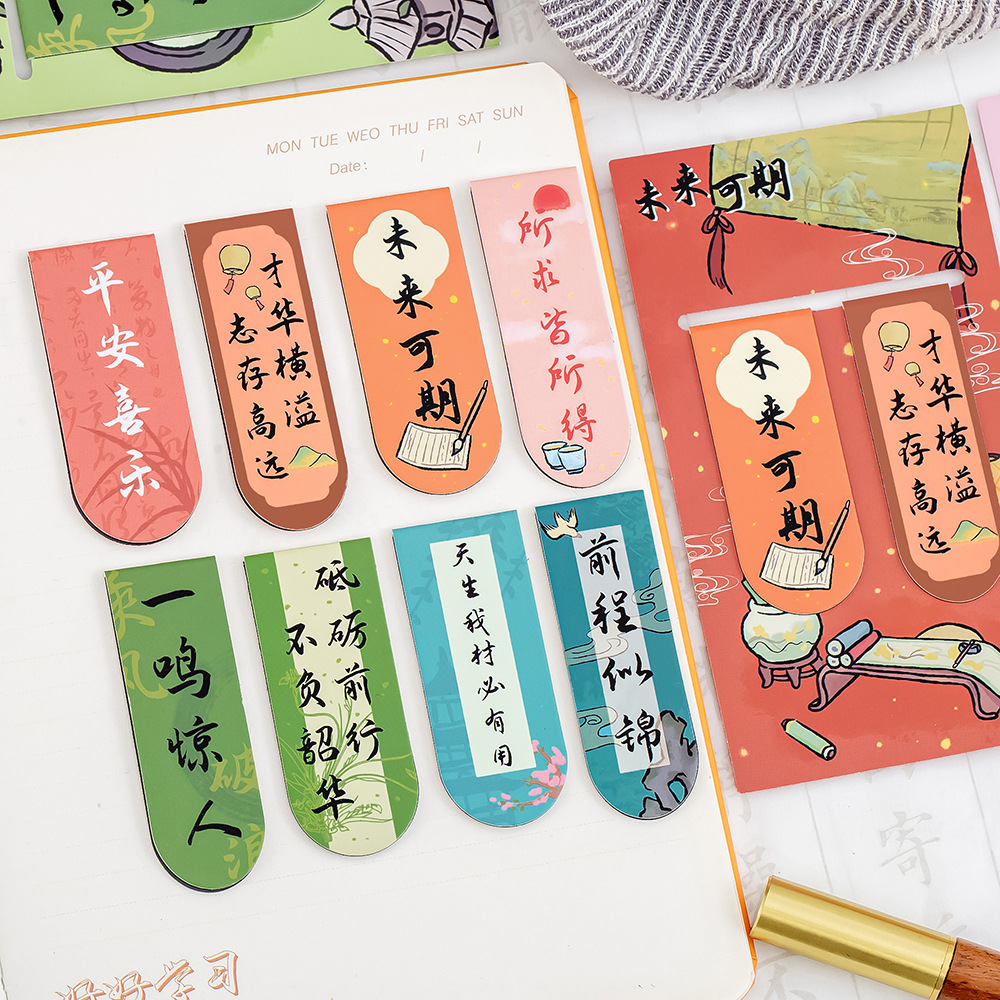 MON TUE WEO THU FRI SAT SUN
Date: / /
平安喜乐
才华横溢
志存高远
未来可期
所求皆所得
一鸣惊人
乘风
破浪
砥砺前行
不负韶华
天生我材必有用
前程似锦
未来可期
未来可期
才华横溢
志存高远
好好学习
寄